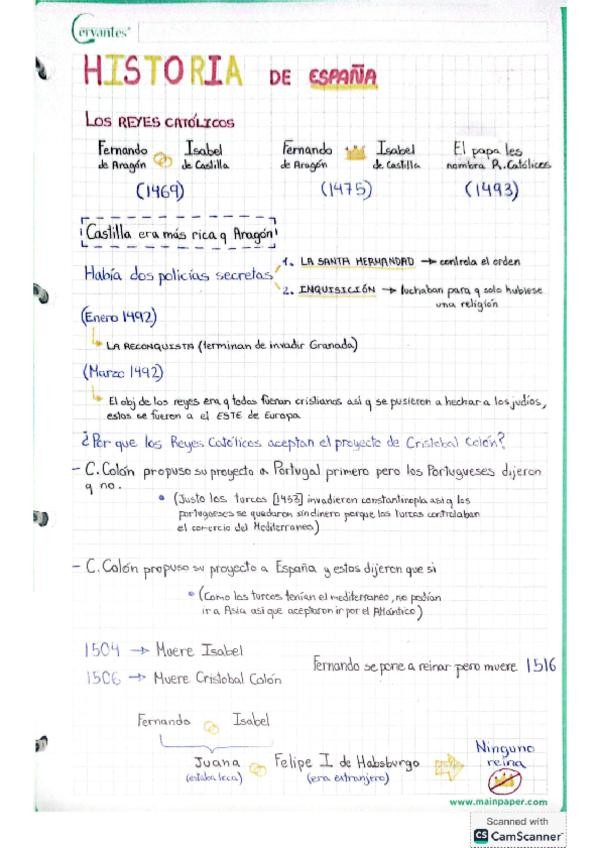 Cervantes®
HISTORIA DE ESPAÑA
LOS REYES CATÓLICOS
Fernando de Aragón Isabel de Castilla
(1469)
Fernando de Aragón Isabel de Castilla
(1475)
El papa les nombra R. Católicos
(1493)
Castilla era más rica q Aragón
Había dos policías secretas
1. LA SANTA HERMANDAD → controla el orden
2. INQUISICIÓN → luchaban para q solo hubiese
una religión
(Enero 1492)
LA RECONQUISTA (terminan de invadir Granada)
(Marzo 1492)
El obj de los reyes era q todos fueran cristianos asi q se pusieron a hechar a los judíos,
estos se fueron a el ESTE de Europa
¿Por que los Reyes Católicos aceptan el proyecto de Cristobal Colón?
- C. Colón propuso su proyecto a Portugal primero pero los Portugueses dijeron
q no.
• (Justo los turcos [1453] invadieron constantinopla asi q los
portugueses se quedaron sin dinero porque los turcos controlaban
el comercio del Mediterraneo)
- C. Colón propuso su proyecto a España y estos dijeron que si
• (Como los turcos tenían el mediterraneo, no podían
ir a Asia asi que aceptaron ir por el Atlántico)
1504 → Muere Isabel
1506 → Muere Cristobal Colón
Fernando se pone a reinar pero muere 1516
Fernando Isabel
Juana Felipe I de Habsburgo
(estaba loca) (era extranjero)
Ninguno
reina
www.mainpaper.com
Scanned with
CS CamScanner